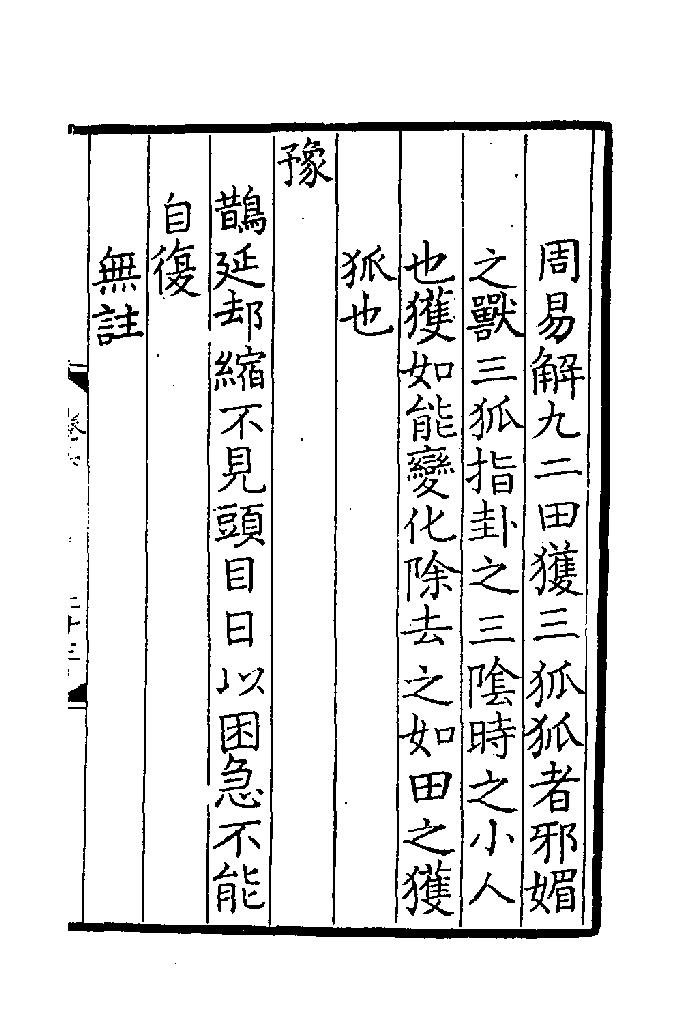 周易解九二田獲三狐狐者邪媚
之獸三狐指卦之三陰時之小人
也獲如能變化除去之如田之獲
狐也
豫
鵲延却縮不見頭目日以困急不能
自復
無註